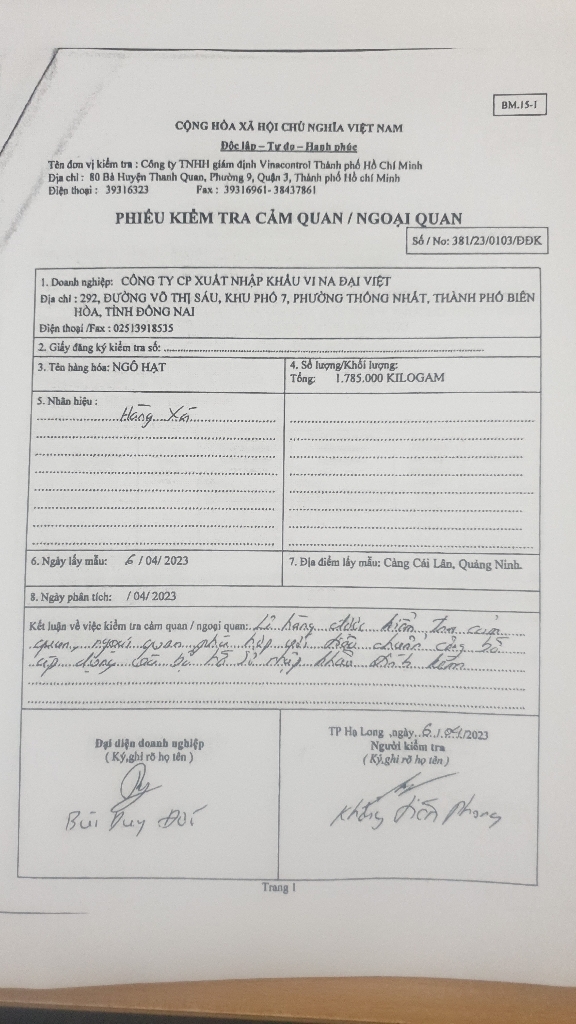 BM.15-1
CỘNG HÒA XÃ HỘI CHỦ NGHĨA VIỆT NAM
Độc lập – Tự do – Hạnh phúc
Tên đơn vị kiểm tra : Công ty TNHH giám định Vinacontrol Thành phố Hồ Chí Minh
Địa chỉ : 80 Bà Huyện Thanh Quan, Phường 9, Quận 3, Thành phố Hồ chí Minh
Điện thoại : 39316323 Fax : 39316961- 38437861
PHIẾU KIỂM TRA CẢM QUAN / NGOẠI QUAN
Số / No: 381/23/0103/ĐĐK
1. Doanh nghiệp: CÔNG TY CP XUẤT NHẬP KHẨU VI NA ĐẠI VIỆT
Địa chỉ : 292, ĐƯỜNG VÕ THỊ SÁU, KHU PHỐ 7, PHƯỜNG THỐNG NHẤT, THÀNH PHỐ BIÊN
HÒA, TỈNH ĐỒNG NAI
Điện thoại /Fax : 02513918535
2. Giấy đăng ký kiểm tra số:
3. Tên hàng hóa: NGÔ HẠT
4. Số lượng/Khối lượng:
Tổng: 1.785.000 KILOGAM
5. Nhãn hiệu :
Hàng Xá
6. Ngày lấy mẫu: 6 / 04/ 2023
7. Địa điểm lấy mẫu: Cảng Cái Lân, Quảng Ninh.
8. Ngày phân tích: / 04/ 2023
Kết luận về việc kiểm tra cảm quan / ngoại quan: Lô hàng được kiểm tra cảm
quan, ngoại quan phù hợp với tiêu chuẩn công bố
áp dụng và bộ hồ sơ nhập khẩu đính kèm
Đại diện doanh nghiệp
( Ký,ghi rõ họ tên )
Bùi Duy
TP Hạ Long ,ngày 6 / 04 /2023
Người kiểm tra
( Ký,ghi rõ họ tên )
Tiến Phong
Trang 1